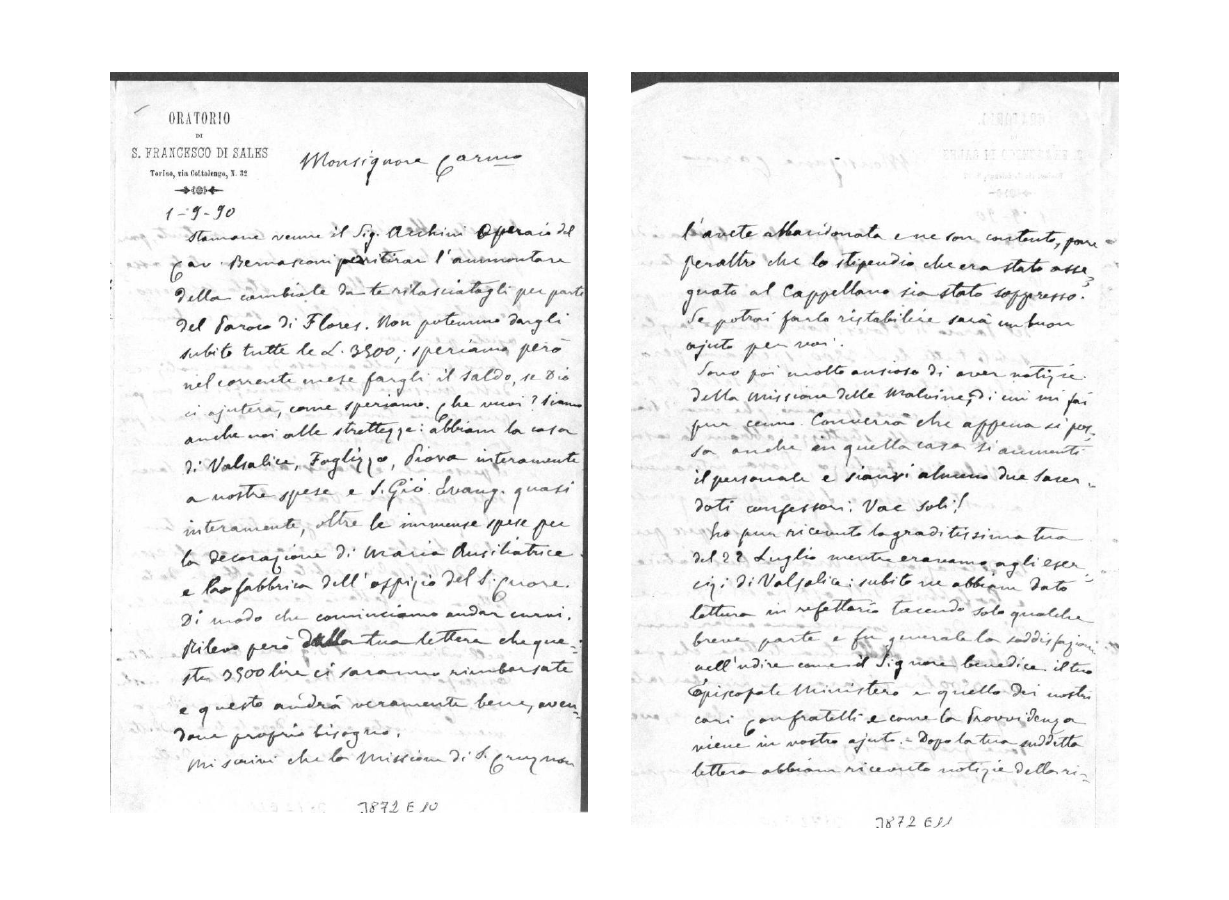 ORATORIO
DI
S. FRANCESCO DI SALES
Torino, via Cottolengo, N. 32
Monsignore Carmo
1-9-90
Stamane venne il Sig. Archini Operaio del
Cav. Bernasconi per ritirar l'ammontare
della cambiale da te rilasciatagli per parte
del Paroco di Flores. Non potemmo dargli
subito tutte le L. 3500; speriamo però
nel corrente mese fargli il saldo, se Dio
ci ajuterà, come speriamo. Che vuoi? Siamo
anche noi alle strettezze: abbiam la casa
di Valsalice, Foglizzo, Piova interamente
a nostre spese e S. Gio. Evang. quasi
interamente, oltre le immense spese per
la decorazione di Maria Ausiliatrice
e la fabbrica dell'ospizio del S. Cuore.
Di modo che cominciamo andar curvi.
Rilevo però dalla tua lettera che que=
ste 3500 lire ci saranno rimborsate
e questo andrà veramente bene, aven=
done proprio bisogno.
Mi scrivi che la Missione di S. Cruz non
J872 E10
l'avete abbandonata e ne son contento, pare
peraltro che lo stipendio che era stato asse=
gnato al Cappellano sia stato soppresso.
Se potrai farlo ristabilire sarà un buon
ajuto per voi.
Sono poi molto ansioso di aver notizie
della Missione delle Malvine, di cui mi fai
pur cenno. Converrà che appena si pos=
sa anche in quella casa si aumenti
il personale e sianvi almeno due Sacer=
doti confessori: Vae soli!
Ho pur ricevuto la graditissima tua
del 22 Luglio mentre eravamo agli eser=
cizi di Valsalice: subito ne abbiam dato
lettura in refettorio tacendo solo qualche
breve parte e fu generale la soddisfazione
nell'udire come il Signore benedice il tuo
Episcopale Ministero e quello dei nostri
cari Confratelli e come la Provvidenza
viene in vostro ajuto. = Dopo la tua suddetta
lettera abbiam ricevuto notizie della ri=
J872 E11